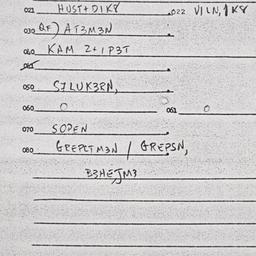 021 HUST+DIK8 022 VILN,1K8
030 QF) AT3M3N
040 KAM 2+1P3T
050 SILUK3RN,
060 0 061 0
070 SOPEN
080 GREPCTM3N / GREPSN,
B3HEJM3